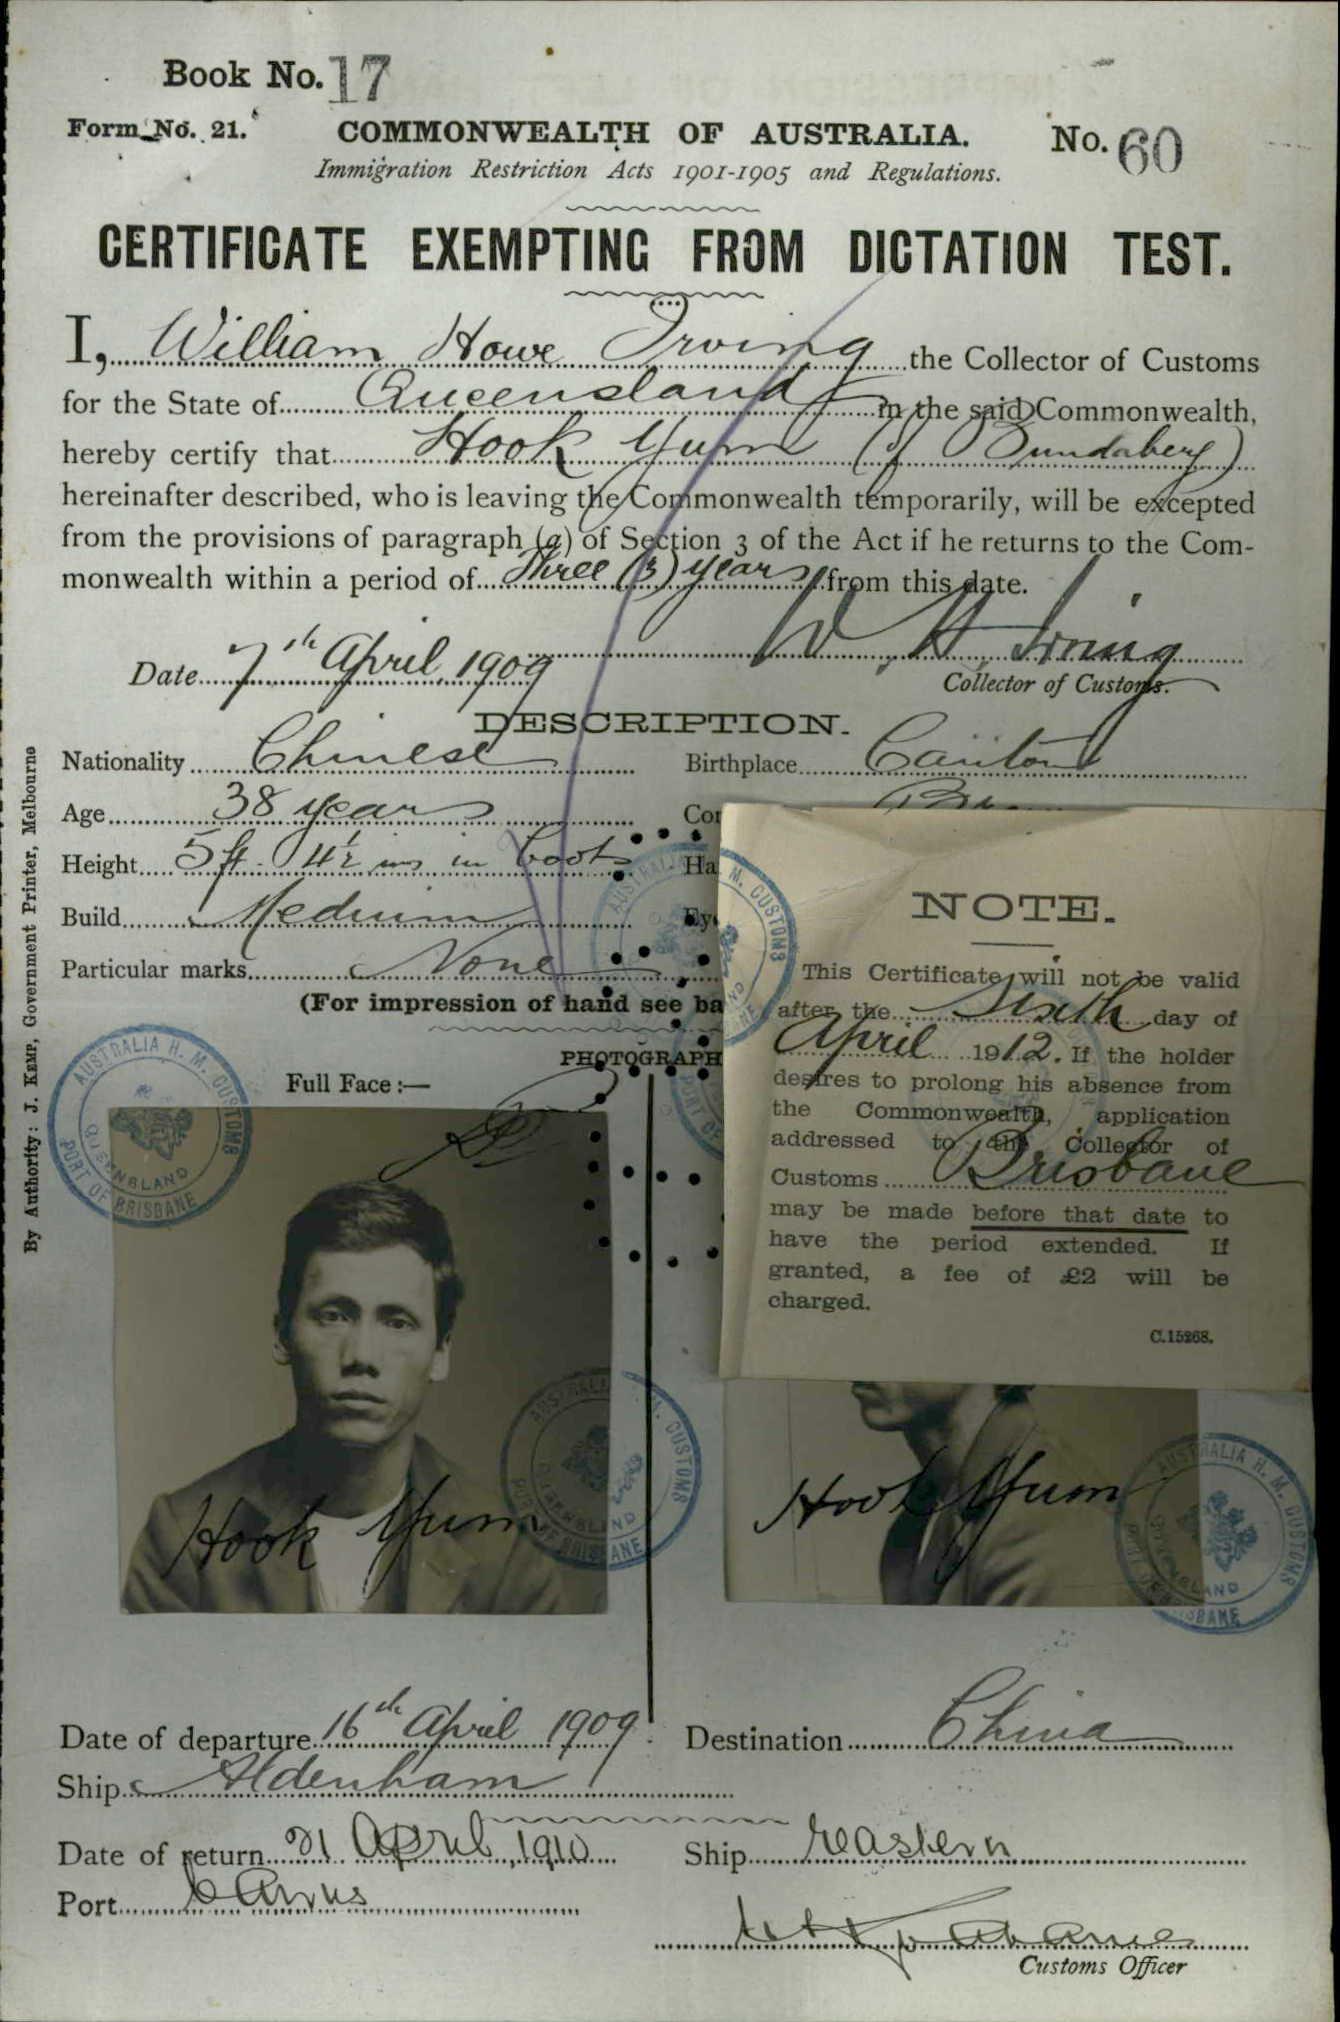 Book No. 17
Form No. 21. COMMONWEALTH OF AUSTRALIA. No. 60
Immigration Restriction Acts 1901-1905 and Regulations.
CERTIFICATE EXEMPTING FROM DICTATION TEST.
I, William Howe Irving the Collector of Customs
for the State of Queensland in the said Commonwealth,
hereby certify that Hook Yum (of Bundaberg)
hereinafter described, who is leaving the Commonwealth temporarily, will be excepted
from the provisions of paragraph (a) of Section 3 of the Act if he returns to the Com-
monwealth within a period of Three (3) years from this date.
W. H. Irving
Date 7th April, 1909
Collector of Customs.
DESCRIPTION.
Nationality Chinese Birthplace Canton
Age 38 years
Height 5ft. 4½ ins in boots
Build Medium
Particular marks None
(For impression of hand see ba
PHOTOGRAPH
Full Face :—
NOTE.
This Certificate will not be valid
after the Sixth day of
April 1912. If the holder
desires to prolong his absence from
the Commonwealth, application
addressed to the Collector of
Customs Brisbane
may be made before that date to
have the period extended. If
granted, a fee of £2 will be
charged.
C.15268.
AUSTRALIA H. M. CUSTOMS
QUEENSLAND
PORT OF BRISBANE
AUSTRALIA H. M. CUSTOMS
QUEENSLAND
PORT OF BRISBANE
AUSTRALIA H. M. CUSTOMS
QUEENSLAND
PORT OF BRISBANE
Hook Yum
Hook Yum
Date of departure 16th April 1909. Destination China
Ship Aldenham
Date of return 21 April, 1910 Ship Eastern
Port Cairns
Customs Officer
By Authority: J. KEMP, Government Printer, Melbourne